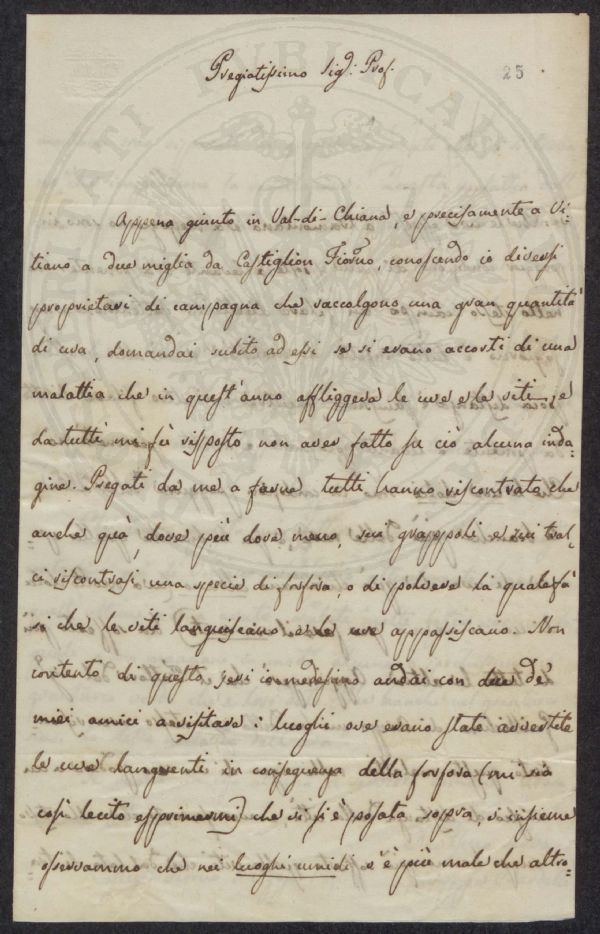 Pregiatissimo Sigr. Prof.
25
Appena giunto in Val-di-Chiana, e precisamente a Vi-
tiano a due miglia da Castiglion Fiorno, conoscendo io diversi
proprietari di campagna che raccolgono una gran quantità
di uva, domandai subito ad essi se si erano accorti di una
malattia che in quest'anno affliggeva le uve e le viti, e
da tutti mi fù risposto non aver fatto su ciò alcuna inda=
gine. Pregati da me a farne tutti hanno riscontrato che
anche quà, dove più dove meno, sui grappoli e sui tral=
ci riscontrasi una specie di forfora, o di polvere la quale fà
si che le viti languiscano e le uve appassiscano. Non
contento di questo jeri io medesimo andai con due de'
miei amici a visitare i luoghi ove erano state avvertite
le uve languenti in conseguenza della forfora (mi sia
così lecito esprimermi) che vi si è posata sopra, e insieme
osservammo che nei luoghi umidi v'è più male che altro=